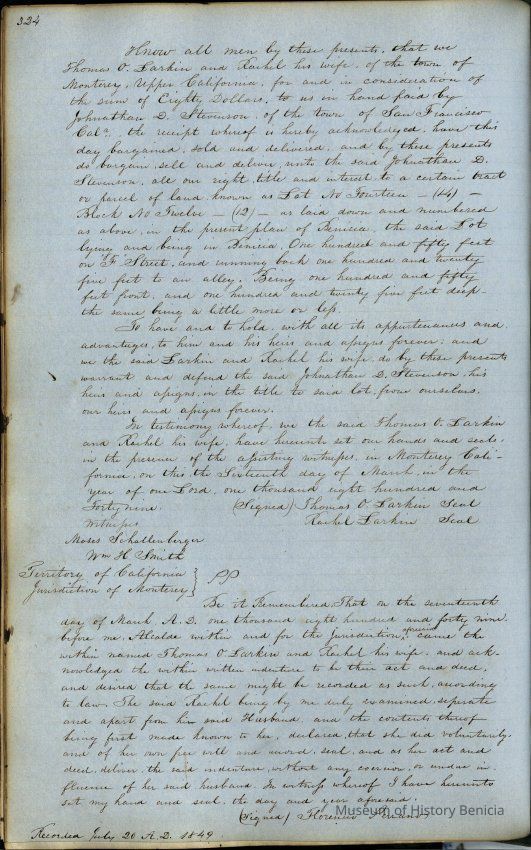 324
Know all men by these presents, that we
Thomas O. Larkin and Rachel his wife, of the town of
Monterey, Upper California, for and in consideration of
the sum of Eighty Dollars, to us in hand paid by
Johnathan D. Stevenson, of the town of San Francisco
Cala, the receipt whereof is hereby acknowledged, have this
day bargained, sold and delivered, and by these presents
do bargain, sell and deliver, unto the said Johnathan D.
Stevenson, all our right, title and interest to a certain tract
or parcel of land known as Lot No Fourteen - (14) -
Block No Twelve - (12) - as laid down and numbered
as above, in the present plan of Benicia, the said Lot
lying and being in Benicia, One hundred and fifty feet
on "F" Street, and running back one hundred and twenty
five feet to an alley. Being one hundred and fifty
feet front, and one hundred and twenty five feet deep -
the same being a little more or less.
To have and to hold, with all its appurtenances and
advantages, to him and his heirs and assigns forever; and
we the said Larkin and Rachel his wife, do by these presents
warrant and defend the said Johnathan D. Stevenson, his
heirs and assigns, in the title to said lot, from ourselves,
our heirs and assigns forever.
In testimony whereof, we the said Thomas O. Larkin
and Rachel his wife, have hereunto set our hands and seals,
in the presence of the assisting witnesses, in Monterey Cali-
fornia, on this the Sixteenth day of March, in the
year of our Lord, one thousand eight hundred and
Forty nine. (Signed) Thomas O. Larkin Seal
Witnesses Rachel Larkin Seal
Moses Schallenberger
Wm H. Smith
Territory of California }
Jurisdiction of Monterey } SS
Be it Remembered, That on the seventeenth
day of March, A.D. one thousand eight hundred and forty nine
before me, Alcalde within and for the Jurisdiction, aforesaid came the
within named Thomas O. Larkin and Rachel his wife, and ack-
nowledged the within written indenture to be their act and deed,
and desired that the same might be recorded as such, according
to law. The said Rachel being by me duly examined, seperate
and apart from her said Husband, and the contents thereof
being first made known to her, declared, that she did voluntarily
and of her own free will and accord, seal, and as her act and
deed, deliver the said indenture, without any coercion, or undue in-
fluence of her said husband. In witness whereof I have hereunto
set my hand and seal, the day and year aforesaid.
(Signed) Florencio Serrano
Recorded July 20 A.D. 1849
Museum of History Benicia